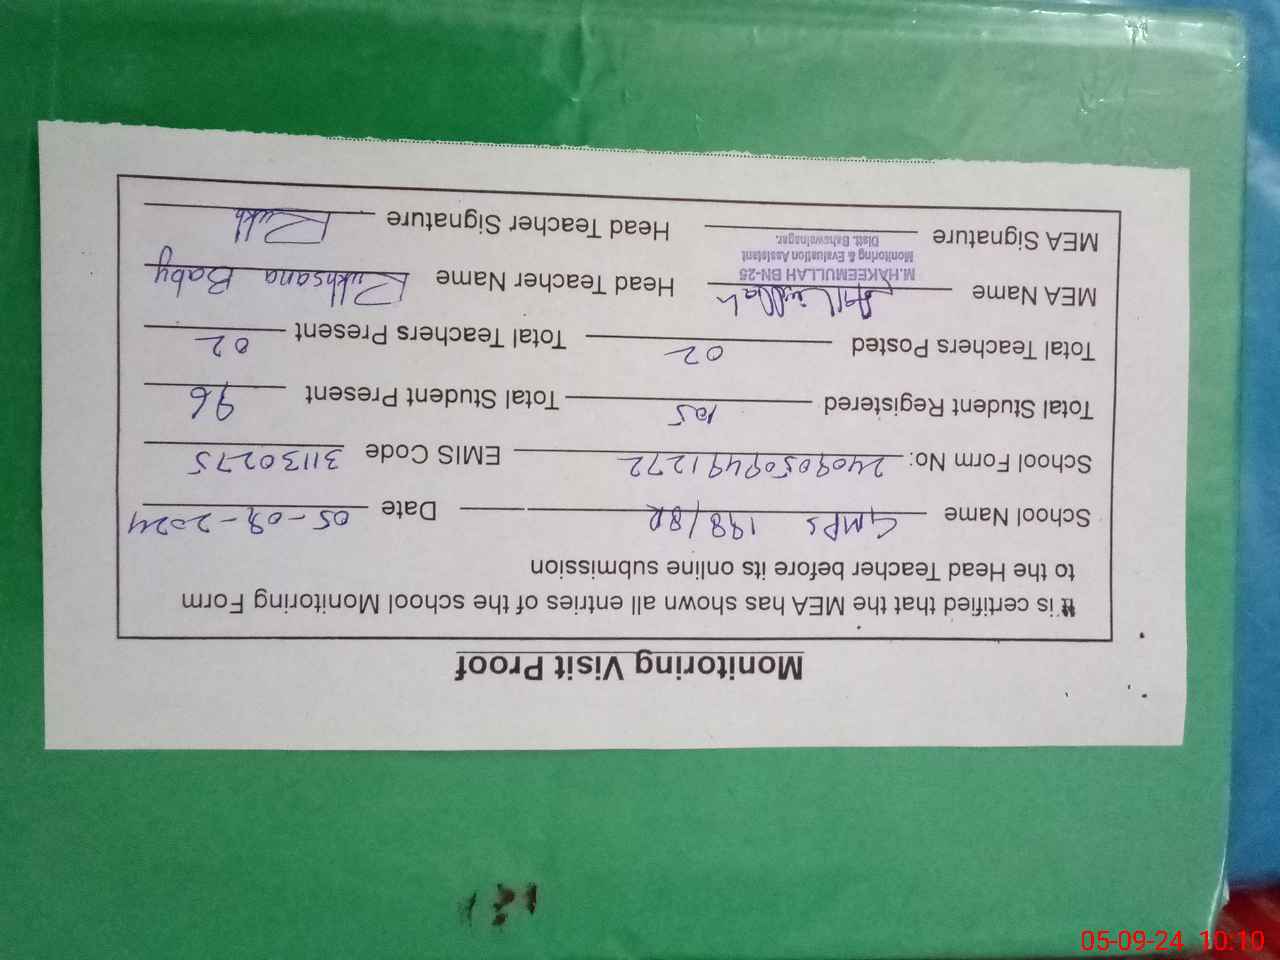 Monitoring Visit Proof
It is certified that the MEA has shown all entries of the school Monitoring Form
to the Head Teacher before its online submission
School Name GMPS 198/8R Date 05-09-2024
School Form No: 24090509491272 EMIS Code 31130275
Total Student Registered 105 Total Student Present 96
Total Teachers Posted 02 Total Teachers Present 02
MEA Name Head Teacher Name Rukhsana Baby
M.HAKEEMULLAH BN-25
Monitoring & Evaluation Assistant
Distt. Bahawalnagar.
MEA Signature Head Teacher Signature Rukh
05-09-24 10:10